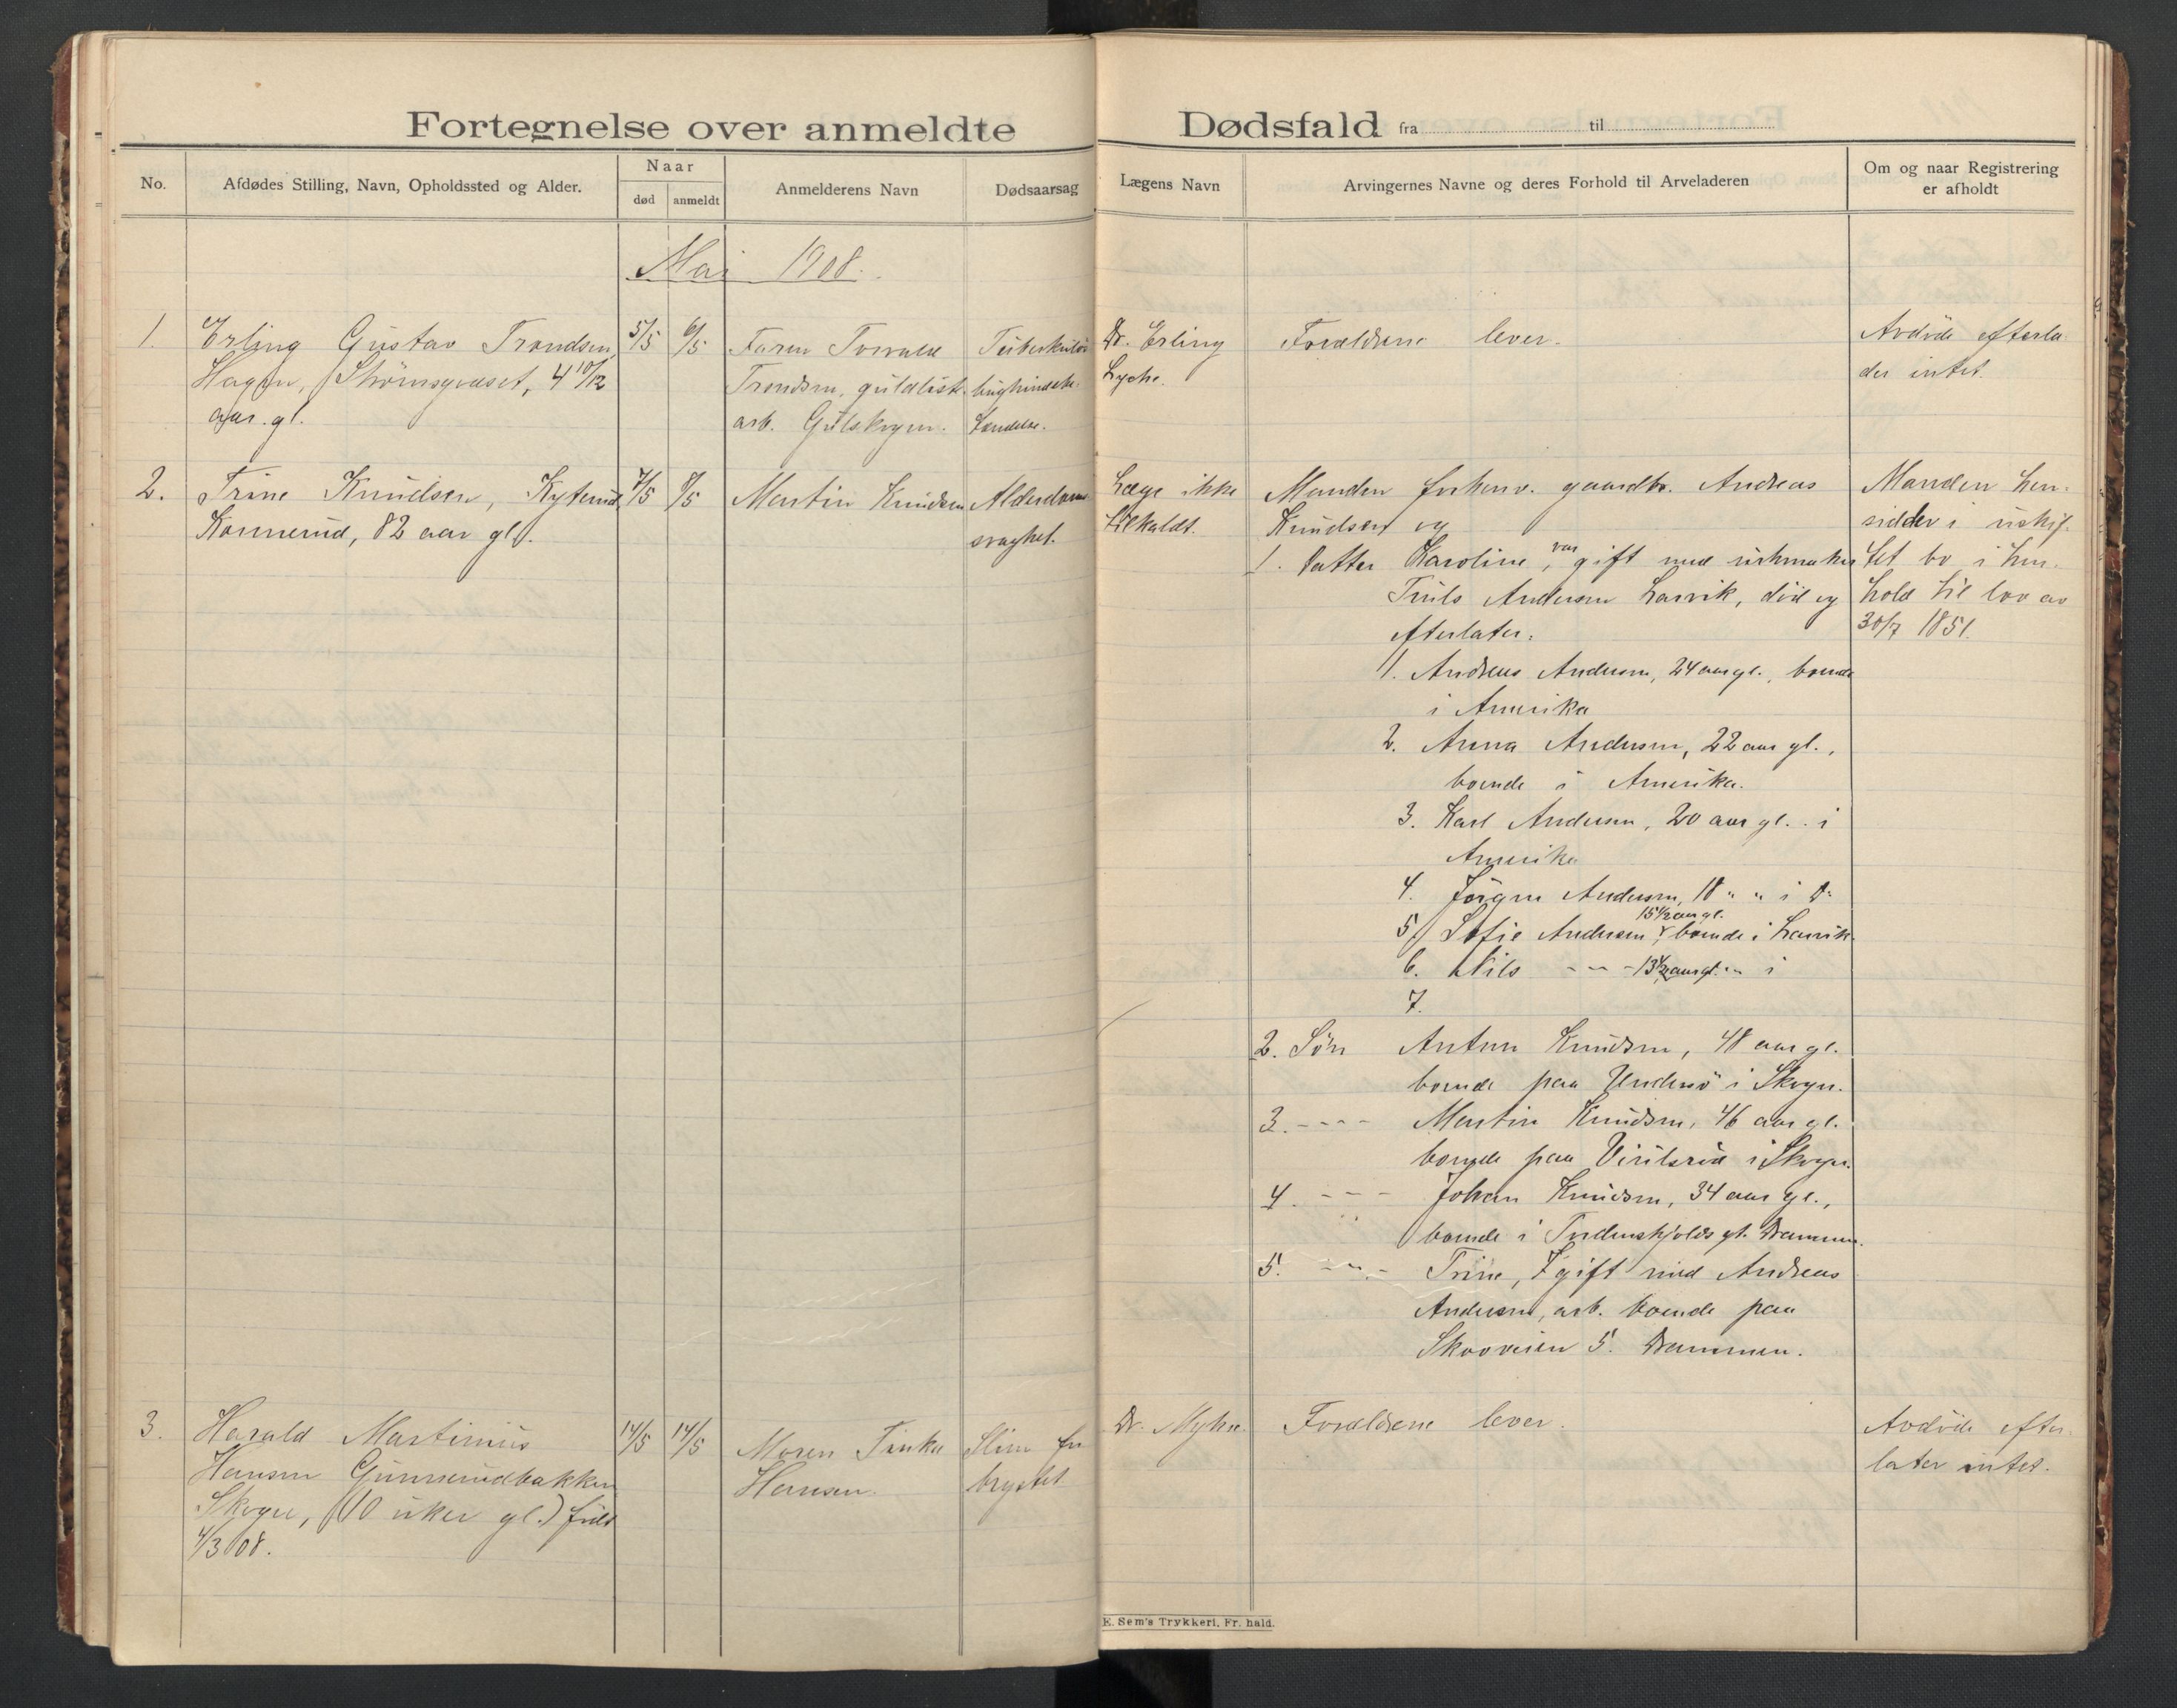 Fortegnelse over anmeldte Dødsfald fra til
No.
Afdødes Stilling, Navn, Opholdssted og Alder.
Naar
død anmeldt
Anmelderens Navn
Dødsaarsag
Lægens Navn
Arvingernes Navne og deres Forhold til Arveladeren
Om og naar Registrering
er afholdt
Mai 1908.
1.
Erling Gustav Trondsen,
Hagen, Strömsgodset, 4 10/12
aar. gl.
5/5
6/5
Faren Torvald
Trondsen, guldliste-
arb. Gulskogen.
Tuberkuløs
bughindebe-
tændelse.
Dr. Erling
Lyche.
Forældrene lever.
Avdöde efterla-
der intet.
2.
Trine Knudsen, Kyterud,
Konnerud, 82 aar gl.
7/5
8/5
Martin Knudsen
Alderdoms-
svaghet.
Læge ikke
tilkaldt.
Manden forhenv. gaardbr. Andreas
Knudsen og
1. Datter Karoline, var gift med urhmaker
Truls Andersen Larvik, död og
efterlater:
1. Andreas Andersen, 24 aar gl., boende
i Amerika
2. Anna Andersen, 22 aar gl.,
boende i Amerika.
3. Karl Andersen, 20 aar gl. . i
Amerika
4. Jörgen Andersen, 18 " " i D"
15 1/2 aar gl.
5. Sofie Andersen, boende i Larvik.
6. Nils - " - 13 1/2 aar gl. " i
7.
2. Sön Anton Knudsen, 48 aar gl.
boende paa Undersö i Skoger.
3. - - - - Martin Knudsen, 46 aar gl.
boende paa i Skoger.
4. - - - Johan Knudsen, 34 aar gl.,
boende i Tordenskjolds gt. Drammen.
5. - " - Trine, gift med Andreas
Andersen, arb. boende paa
Skovveien 5. Drammen.
Manden hen-
sidder i uskif-
tet bo i hen-
hold til lov av
30/7 1851.
3.
Harald Martinius
Hansen Gunnerudbakken
Skoger, (10 uker gl.) född
4/3 08.
14/5
14/5
Moren Tinka
Hansen.
Slim for
brystet
Dr. Myhre.
Forældrene lever.
Avdöde efter-
later intet.
E. Sem's Trykkeri, Fr. hald.